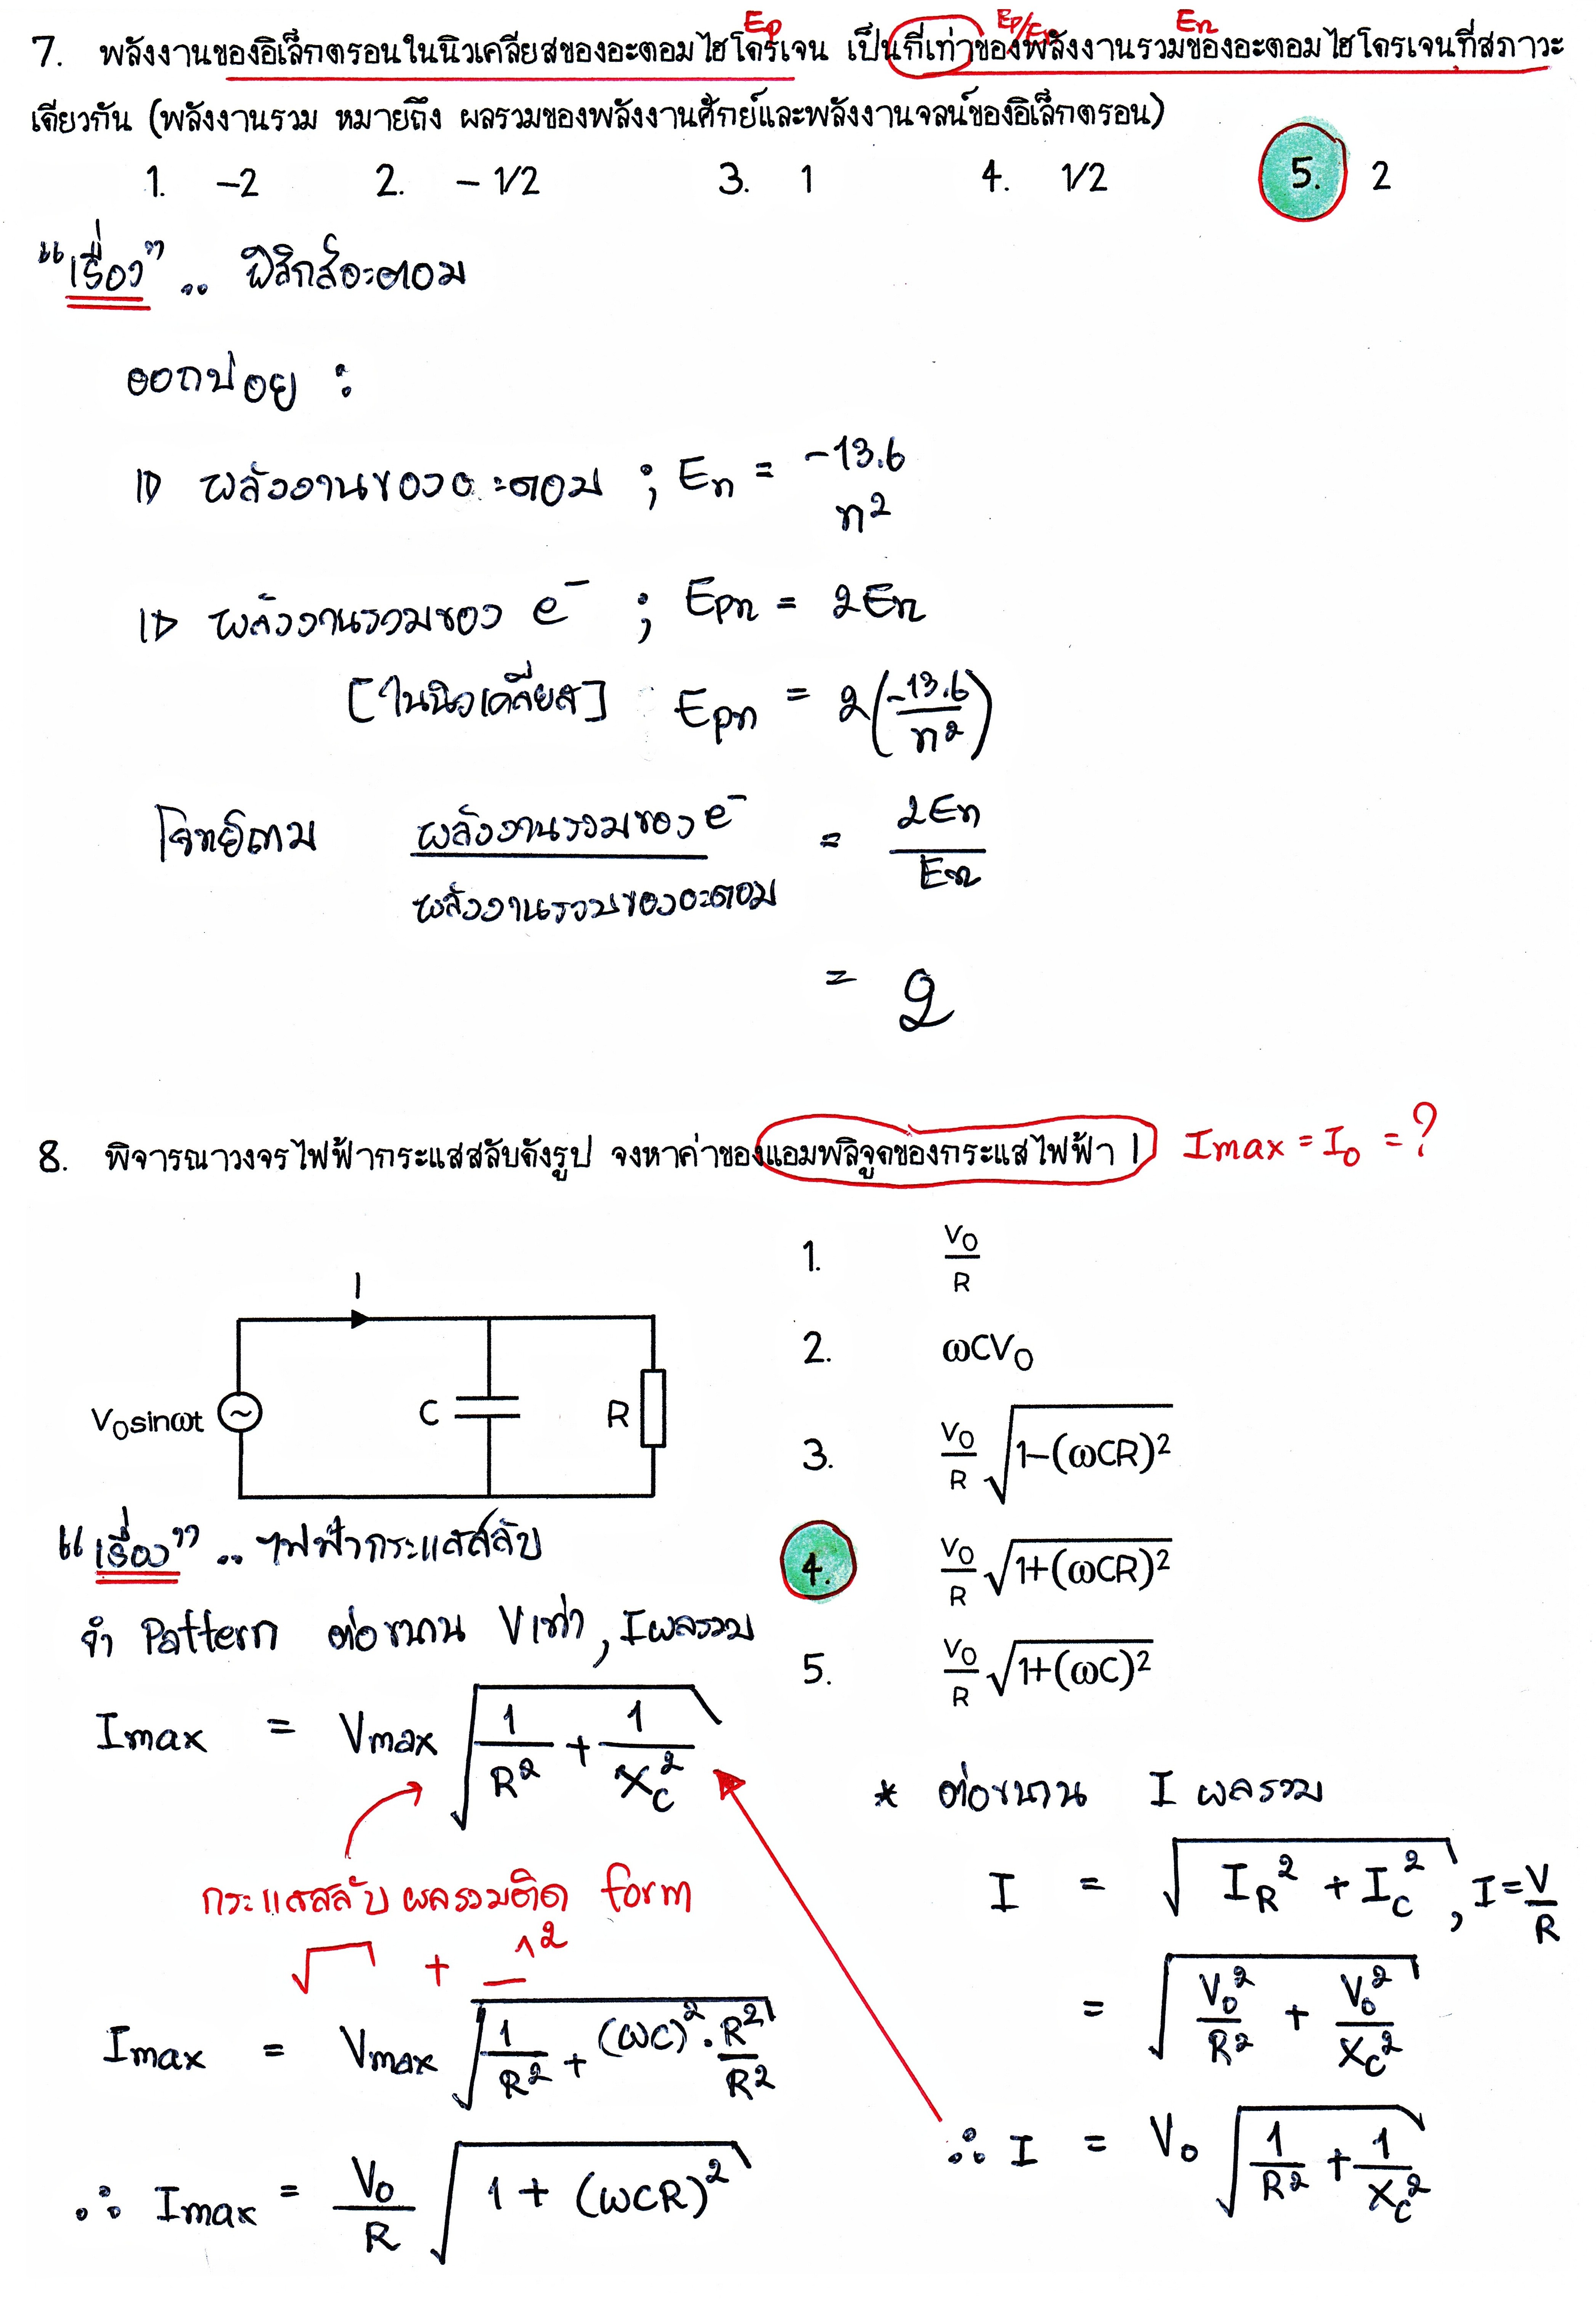 Ep Ep/En En
7. พลังงานของอิเล็กตรอนในนิวเคลียสของอะตอมไฮโดรเจน เป็นกี่เท่าของพลังงานรวมของอะตอมไฮโดรเจนที่สภาวะ
เดียวกัน (พลังงานรวม หมายถึง ผลรวมของพลังงานศักย์และพลังงานจลน์ของอิเล็กตรอน)
1. -2 2. - 1/2 3. 1 4. 1/2 5. 2
"เรื่อง" .. ฟิสิกส์อะตอม
ออกบ่อย :
พลังงานของอะตอม ; En = -13.6/n²
พลังงานรวมของ e⁻ ; Epn = 2En
[ในนิวเคลียส] Epn = 2(-13.6/n²)
โจทย์ถาม พลังงานรวมของ e⁻/พลังงานรวมของอะตอม = 2En/En
= 2
8. พิจารณาวงจรไฟฟ้ากระแสสลับดังรูป จงหาค่าของแอมพลิจูดของกระแสไฟฟ้า I Imax = I₀ = ?
I
V₀sinωt C R
1. V₀/R
2. ωCV₀
3. V₀/R √1-(ωCR)²
4. V₀/R √1+(ωCR)²
5. V₀/R √1+(ωC)²
"เรื่อง" .. ไฟฟ้ากระแสสลับ
จำ Pattern ต่อขนาน Vเท่า, Iผลรวม
Imax = Vmax √1/R² + 1/Xc²
กระแสสลับ ผลรวมติด form
√ + ²
Imax = Vmax √1/R² + (ωC)² · R²/R²
∴ Imax = V₀/R √1 + (ωCR)²
* ต่อขนาน I ผลรวม
I = √I_R² + I_C² , I = V/R
= √V₀²/R² + V₀²/Xc²
∴ I = V₀ √1/R² + 1/Xc²